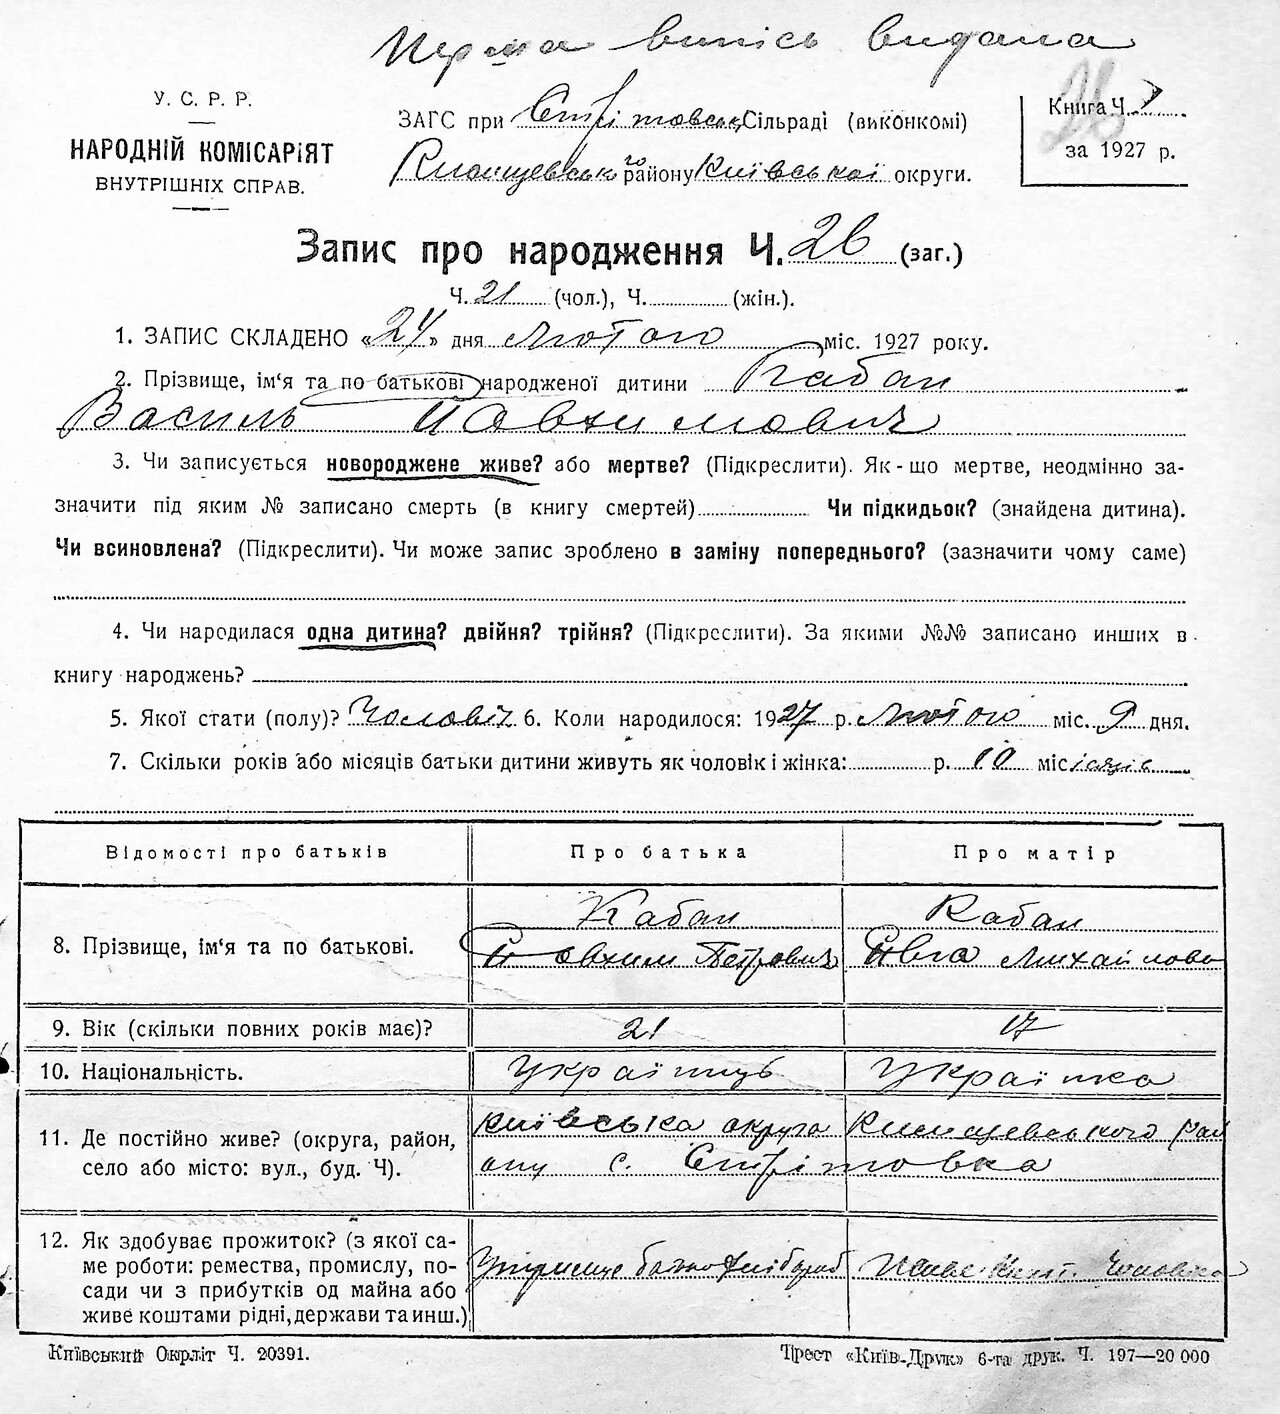 Перша випісь видана
У. С. Р. Р.
НАРОДНІЙ КОМІСАРІЯТ
ВНУТРІШНІХ СПРАВ.
ЗАГС при Стрітовськ. Сільраді (виконкомі)
району Київської округи.
Книга Ч.
за 1927 р.
Запис про народження Ч. 26 (заг.)
Ч. 21 (чол.), Ч. (жін.).
1. ЗАПИС СКЛАДЕНО «24» дня Лютого міс. 1927 року.
2. Прізвище, ім‘я та по батькові народженої дитини Кабан
Василь Йовхимович
3. Чи записується новороджене живе? або мертве? (Підкреслити). Як-що мертве, неодмінно за-
значити під яким № записано смерть (в книгу смертей) Чи підкидьок? (знайдена дитина).
Чи всиновлена? (Підкреслити). Чи може запис зроблено в заміну попереднього? (зазначити чому саме)
4. Чи народилася одна дитина? двійня? трійня? (Підкреслити). За якими №№ записано инших в
книгу народжень?
5. Якої стати (полу)? Чоловіч 6. Коли народилося: 1927 р. Лютого міс. 9 дня.
7. Скільки років або місяців батьки дитини живуть як чоловік і жінка: р. 10 місяців
Відомості про батьків Про батька Про матір
8. Прізвище, ім‘я та по батькові. Кабан Йовхим Петрович Кабан Євга Михайлова
9. Вік (скільки повних років має)? 21 17
10. Національність. Українць Українка
11. Де постійно живе? (округа, район, село або місто: вул., буд. Ч). київська округа рай
ону с. Стрітовка
12. Як здобуває прожиток? (з якої са-
ме роботи: ремества, промислу, по-
сади чи з прибутків од майна або
живе коштами рідні, держави та инш.)
Київський Окрліт Ч. 20391. Трест «Київ-Друк» 6-та друк. Ч. 197—20 000